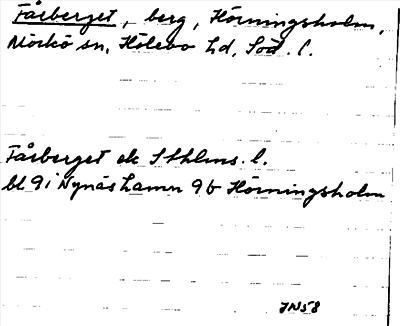 Fårberget, berg, Hörningsholm,
Mörkö sn, Hölebo hd, Söd. l.
Fårberget ek Sthlms. l.
bl 9i Nynäshamn 9b Hörningsholm
JN58